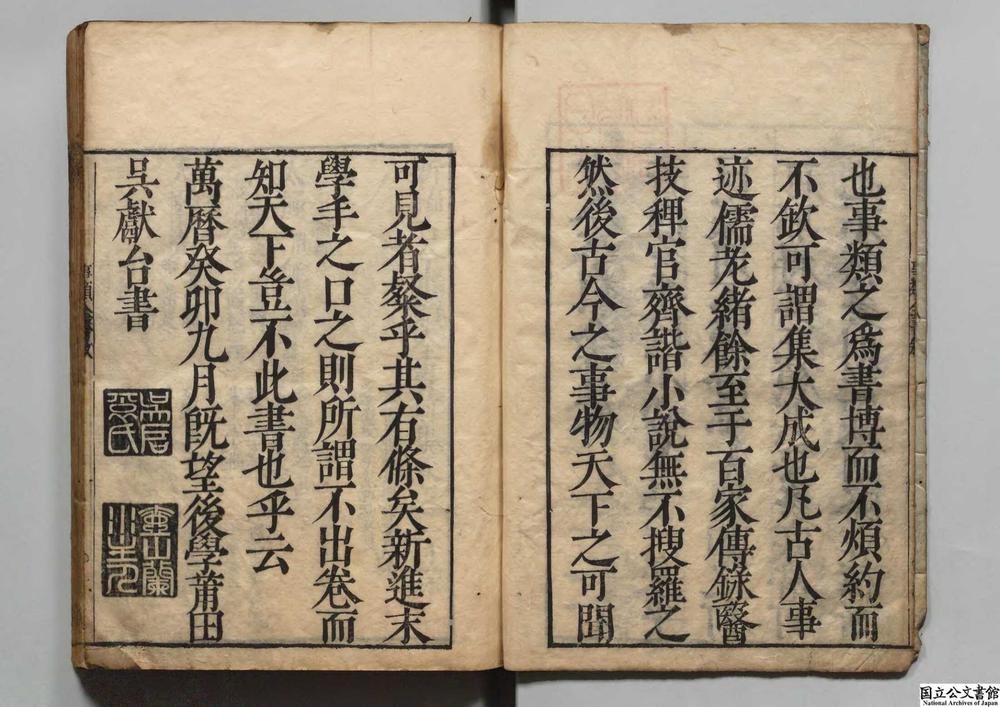 也事類之爲書博而不煩約而
不欽可謂集大成也凡古人事
迹儒老緒餘至于百家傳錄醫
技稗官齊諧小說無不搜羅之
然後古今之事物天下之可聞
可見者粲乎其有條矣新進末
學手之口之則所謂不出卷而
知天下豈不此書也乎云
萬曆癸卯九月旣望後學莆田
吳獻台書
国立公文書館
National Archives of Japan